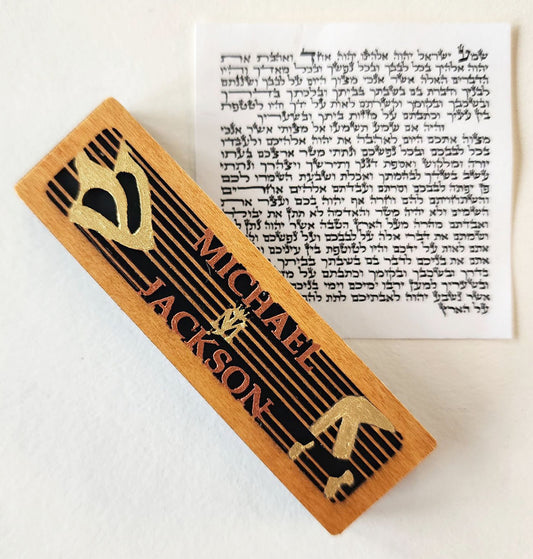 שמע ישראל יהוה אלהינו יהוה אחד ואהבת את
יהוה אלהיך בכל לבבך ובכל נפשך ובכל מאדך והיו
הדברים האלה אשר אנכי מצוך היום על לבבך ושננתם
לבניך ודברת בם בשבתך בביתך ובלכתך בדרך
ובשכבך ובקומך וקשרתם לאות על ידך והיו לטטפת
בין עיניך וכתבתם על מזזות ביתך ובשעריך
והיה אם שמע תשמעו אל מצותי אשר אנכי
מצוה אתכם היום לאהבה את יהוה אלהיכם ולעבדו
בכל לבבכם ובכל נפשכם ונתתי מטר ארצכם בעתו
יורה ומלקוש ואספת דגנך ותירשך ויצהרך ונתתי
עשב בשדך לבהמתך ואכלת ושבעת השמרו לכם
פן יפתה לבבכם וסרתם ועבדתם אלהים אחרים
והשתחויתם להם וחרה אף יהוה בכם ועצר את
השמים ולא יהיה מטר והאדמה לא תתן את יבולה
ואבדתם מהרה מעל הארץ הטבה אשר יהוה נתן
ושמתם את דברי אלה על לבבכם ועל נפשכם
אתם לאות על ידכם והיו לטוטפת בין עיניכם
את בניכם לדבר בם בשבתך בביתך
בדרך ובשכבך ובקומך וכתבתם על
ובשעריך למען ירבו ימיכם וימי בניכם
אשר נשבע יהוה לאבתיכם לתת להם
על הארץ
ש
MICHAEL
JACKSON